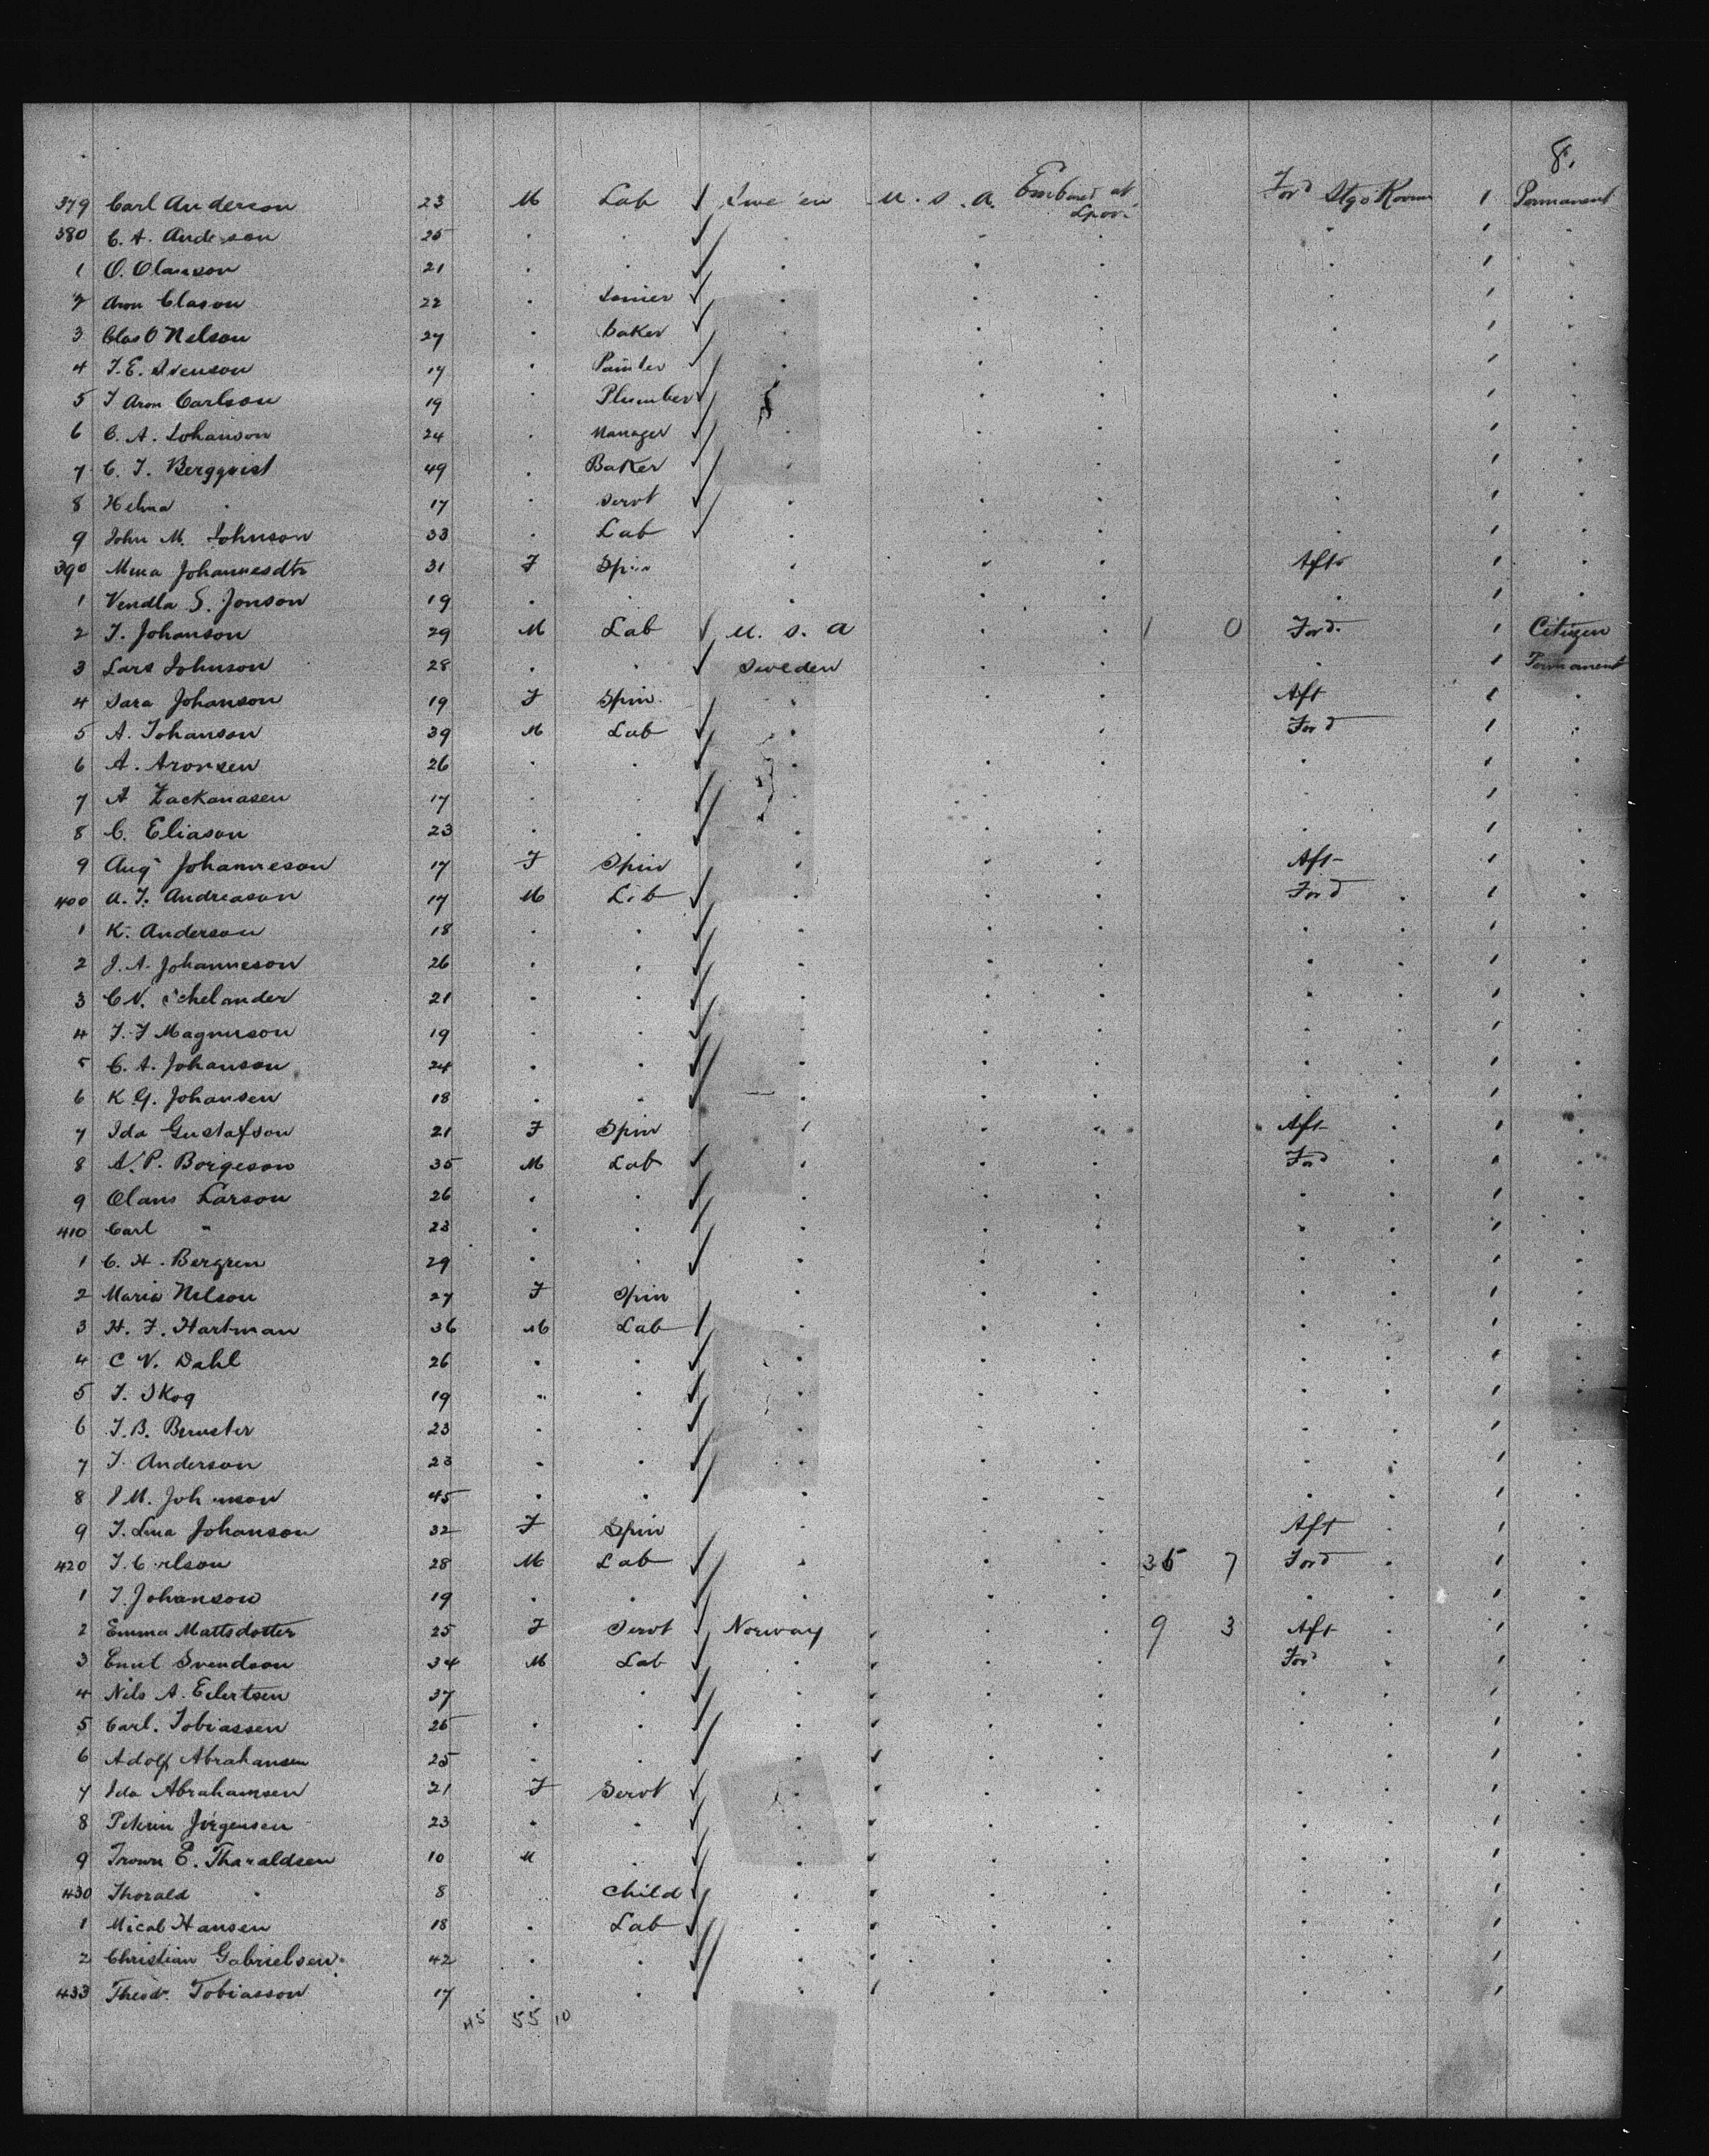 8.
379 Carl Anderson 23 M Lab Swe en U. S. A. Embared at Lpool Ford Stge Room 1 Permanent
380 C. A. Ande son 25 1
1 O. Olausson 21 1
2 Aron Clason 22 1
3 Clas O Nelson 27 Baker 1
4 J. E. Svenson 17 Painter 1
5 J Aron Carlson 19 Plumber 1
6 C. A. Johanson 24 Manager 1
7 C. J. Bergqvist 49 Baker 1
8 Helma 17 Servt 1
9 John M. Johnson 33 Lab 1
390 Johannesdtr 31 F Spin Aft 1
1 Vendla S. Jonson 19 1
2 J. Johanson 29 M Lab U. S. A 1 0 Ford. 1 Citizen
3 Lars Johnson 28 Sweden 1 Permanent
4 Sara Johanson 19 F Spin. Aft 1
5 A. Johanson 39 M Lab Ford 1
6 A. Aronsen 26 1
7 A Zackanasen 17 1
8 C. Eliason 23 1
9 Aug Johanneson 17 F Spin Aft 1
400 A. J. Andreason 17 M Lab Ford 1
1 K. Anderson 18 1
2 J. A. Johanneson 26 1
3 C V. chelander 21 1
4 J. F Magnuson 19 1
5 C. A. Johanson 24 1
6 K G. Johansen 18 1
7 Ida Gustafson 21 F Spin Aft 1
8 A. P. Borgeson 35 M Lab Ford 1
9 Olaus Larson 26 1
410 Carl " 23 1
1 C. H. Bergren 29 1
2 Maria Nelson 27 F Spin 1
3 H. F. Hartman 36 M Lab 1
4 C V. Dahl 26 1
5 J. Skog 19 1
6 J. B. 23 1
7 J. Anderson 23 1
8 J M. Joh nson 45 1
9 J. Lina Johanson 32 F Spin Aft 1
420 J. C rlson 28 M Lab 36 7 Ford 1
1 J. Johanson 19 1
2 Emma Mattsdotter 25 F Servt Norway 9 3 Aft 1
3 Emil Svendson 34 M Lab Ford 1
4 Nils A. Eilertsen 37 1
5 Carl. Tobiassen 25 1
6 Adolf Abrahansen 25 1
7 Ida Abrahamsen 21 F Servt 1
8 Jorgensen 23 1
9 E. Tharaldsen 10 M 1
430 Thorald 8 Child 1
1 Micab Hansen 18 Lab 1
2 Christian Gabrielsen 42 1
433 Theodr. Tobiasson 17 1
45 55 10